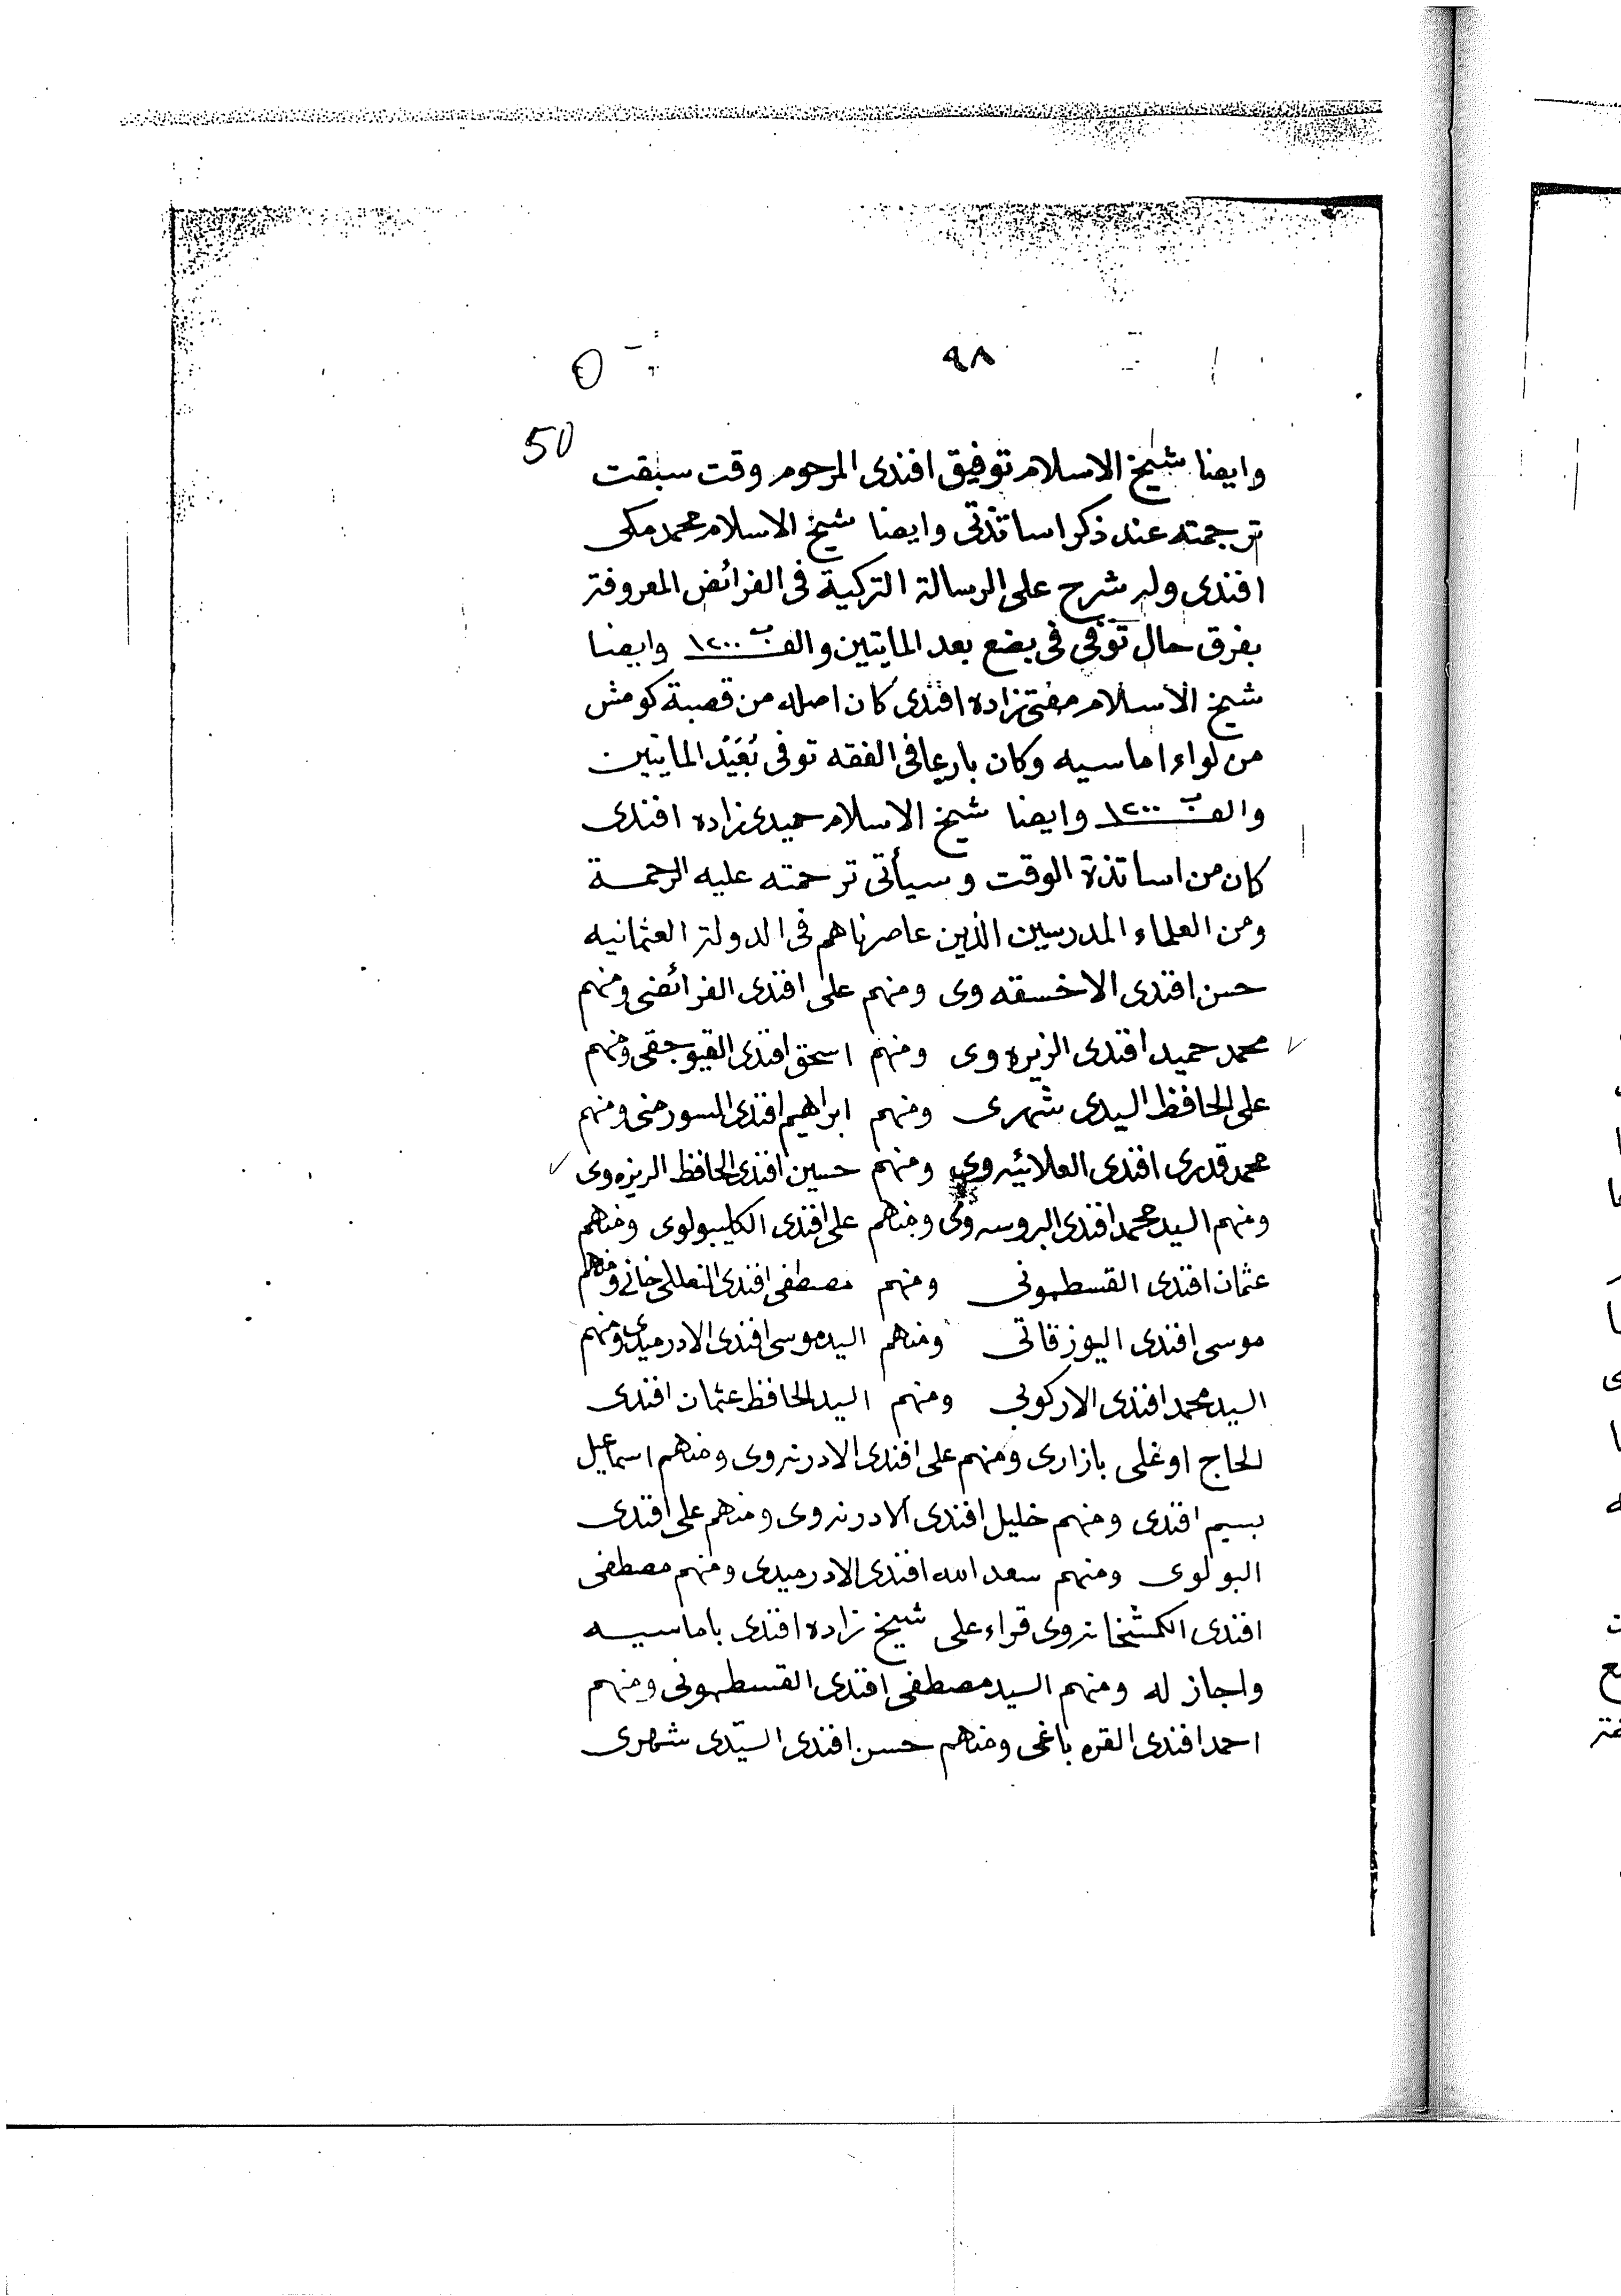 ٩٨
50
وايضا شيخ الاسلام توفيق افندى المرحوم وقت سبقت
ترجمته عند ذكر اساتذتى وايضا شيخ الاسلام محمد مكى
افندى وله شرح على الرسالة التركية فى الفرائض المعروفة
بفرق حال توفى فى بضع بعد المايتين والف ١٢٠٠ وايضا
شيخ الاسلام مفتى زاده افندى كان اصله من قصبة كومش
من لواء اماسيه وكان بارعا فى الفقه توفى بُعَيْد المايتين
والف ١٢٠٠ وايضا شيخ الاسلام حميدى زاده افندى
كان من اساتذة الوقت وسيأتى ترحمته عليه الرحمة
ومن العلماء المدرسين الذين عاصرناهم فى الدولة العثمانيه
حسن افندى الاخسقه وى ومنهم على افندى الفرائضى ومنهم
محمد حميد افندى الزيره وى ومنهم اسحق افندى القيوجقى ومنهم
على الحافظ السيدى شهرى ومنهم ابراهيم افندى السورمنى ومنهم
محمد قدرى افندى العلائيه وى ومنهم حسين افندى الحافظ الريزه وى
ومنهم السيد محمد افندى البروسه وى ومنهم على افندى الكليبولوى ومنهم
عثمان افندى القسطمونى ومنهم مصطفى افندى النعللى خانى ومنهم
موسى افندى اليوزقاتى ومنهم السيد موسى افندى الادرميدى ومنهم
السيد محمد افندى الاركوبى ومنهم السيد الحافظ عثمان افندى
الحاج اوغلى بازارى ومنهم على افندى الادرنه وى ومنهم اسماعيل
بسيم افندى ومنهم خليل افندى الادرنه وى ومنهم على افندى
البولوى ومنهم سعد الله افندى الادرميدى ومنهم مصطفى
افندى الكمشخانه وى قراء على شيخ زاده افندى باماسيه
واجاز له ومنهم السيد مصطفى افندى القسطمونى ومنهم
احمد افندى القره باغى ومنهم حسن افندى السيّدى شهرى